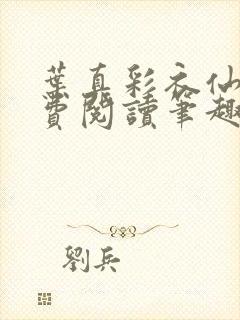 葉真彩衣仙
費閱讀筆趣
劉兵